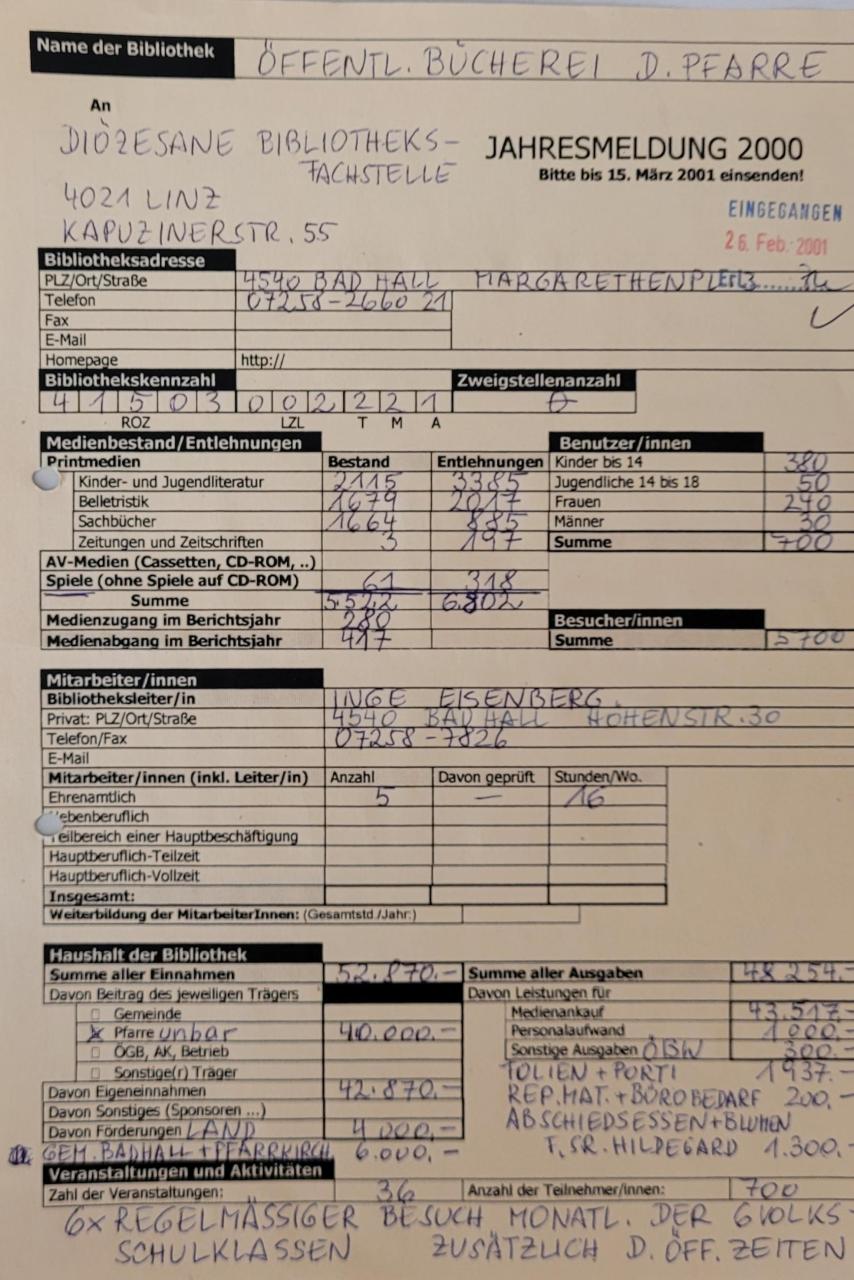 Name der Bibliothek ÖFFENTL. BÜCHEREI D. PFARRE
An
DIÖZESANE BIBLIOTHEKS-
FACHSTELLE
JAHRESMELDUNG 2000
Bitte bis 15. März 2001 einsenden!
4021 LINZ
KAPUZINERSTR. 55
EINGEGANGEN
26. Feb. 2001
Bibliotheksadresse
PLZ/Ort/Straße 4540 BAD HALL MARGARETHENPL Erl3......
Telefon 07258-2660 21
Fax
E-Mail
Homepage http://
Bibliothekskennzahl Zweigstellenanzahl
4 1 5 0 3 0 0 2 2 2 1 0
ROZ LZL T M A
Medienbestand/Entlehnungen Benutzer/innen
Printmedien Bestand Entlehnungen Kinder bis 14 380
Kinder- und Jugendliteratur 2115 3385 Jugendliche 14 bis 18 50
Belletristik 1679 2017 Frauen 240
Sachbücher 1664 885 Männer 30
Zeitungen und Zeitschriften 3 197 Summe 700
AV-Medien (Cassetten, CD-ROM, ..)
Spiele (ohne Spiele auf CD-ROM) 61 318
Summe 5.522 6.802
Medienzugang im Berichtsjahr 280 Besucher/innen
Medienabgang im Berichtsjahr 417 Summe 5700
Mitarbeiter/innen
Bibliotheksleiter/in INGE EISENBERG.
Privat: PLZ/Ort/Straße 4540 BAD HALL HÖHENSTR. 30
Telefon/Fax 07258-7826
E-Mail
Mitarbeiter/innen (inkl. Leiter/in) Anzahl Davon geprüft Stunden/Wo.
Ehrenamtlich 5 — 16
ebenberuflich
eilbereich einer Hauptbeschäftigung
Hauptberuflich-Teilzeit
Hauptberuflich-Vollzeit
Insgesamt:
Weiterbildung der MitarbeiterInnen: (Gesamtstd./Jahr:)
Haushalt der Bibliothek
Summe aller Einnahmen 52.870.- Summe aller Ausgaben 48 254.-
Davon Beitrag des jeweiligen Trägers Davon Leistungen für
Gemeinde Medienankauf 43.517.-
x Pfarre unbar 40.000.- Personalaufwand 1000.-
ÖGB, AK, Betrieb Sonstige Ausgaben ÖBW 300.-
Sonstige(r) Träger FOLIEN + PORTI 1937.-
Davon Eigeneinnahmen 42.870.- REP. MAT. + BÜROBEDARF 200.-
Davon Sonstiges (Sponsoren ...) ABSCHIEDSESSEN + BLUMEN
Davon Förderungen LAND 4 000.- F. SR. HILDEGARD 1.300.-
GEM. BADHALL + PFARRKIRCH. 6.000.-
Veranstaltungen und Aktivitäten
Zahl der Veranstaltungen: 36 Anzahl der Teilnehmer/innen: 700
6x REGELMÄSSIGER BESUCH MONATL. DER 6 VOLKS-
SCHULKLASSEN ZUSÄTZLICH D. ÖFF. ZEITEN